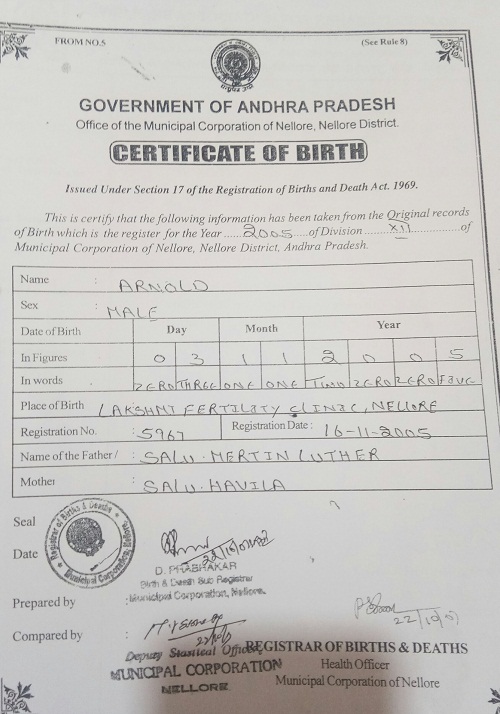 FROM NO.5
(See Role 8)
GOVERNMENT OF ANDHRA PRADESH
Office of the Municipal Corporation of Nellore, Nellore District.
CERTIFICATE OF BIRTH
Issued Under Section 17 of the Registration of Births and Death Act. 1969.
This is certify that the following information has been taken from the Original records
of Birth which is the register for the Year ......2005......of Division ......XII...............of
Municipal Corporation of Nellore, Nellore District, Andhra Pradesh.
Name : ARNOLD
Sex : MALE
Date of Birth Day Month Year
In Figures 0 3 1 1 2 0 0 5
In words ZERO THREE ONE ONE TWO ZERO ZERO FIVE
Place of Birth LAKSHMI FERTILITY CLINIC, NELLORE
Registration No. : 5967 Registration Date : 16-11-2005
Name of the Father / : SALU. MERTIN LUTHER
Mother : SALU. HAVILA
Seal
Registrar of Births & Deaths
Municipal Corporation
Date
D. PRABHAKAR
Birth & Death Sub Registrar
Municipal Corporation, Nellore.
Prepared by :
Compared by :
Deputy Stastical Officer
MUNICIPAL CORPORATION
NELLORE
REGISTRAR OF BIRTHS & DEATHS
Health Officer
Municipal Corporation of Nellore